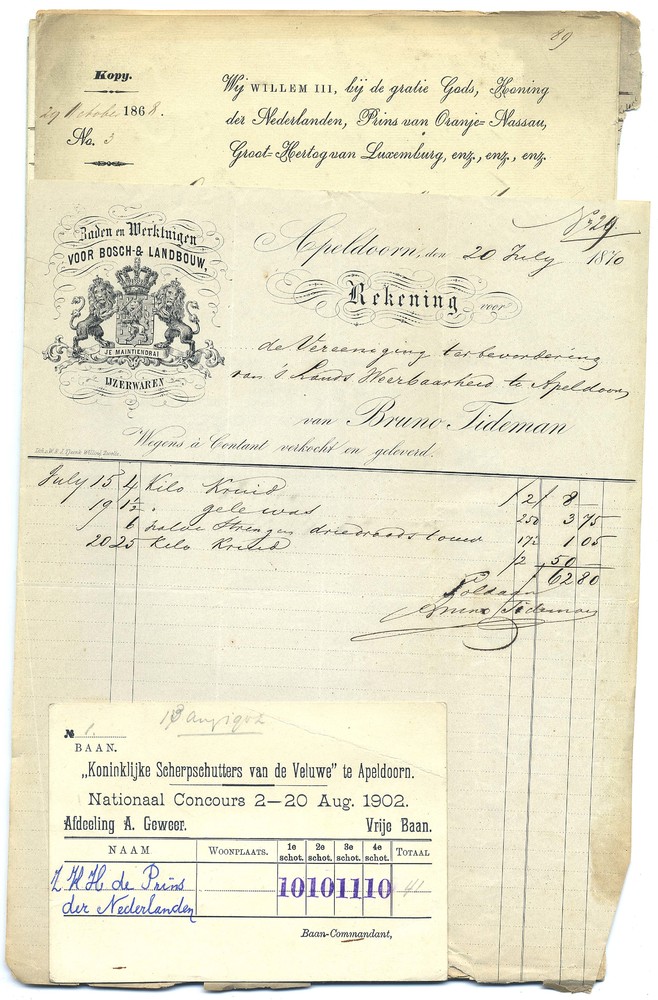 89
Kopy.
29 October 1868.
No. 3
Wij WILLEM III, bij de gratie Gods, Koning
der Nederlanden, Prins van Oranje-Nassau,
Groot-Hertog van Luxemburg, enz., enz., enz.
No 29
Zaden en Werktuigen
VOOR BOSCH-& LANDBOUW,
JE MAINTIENDRAI
IJZERWAREN
Apeldoorn, den 20 July 1870
Rekening voor
de Vereeniging ter bevordering
van 's Lands Weerbaarheid te Apeldoorn
van Bruno Tideman
Wegens à Contant verkocht en geleverd.
July 15 4 Kilo Kruid /2/ 8 —
19 1½ " gele was 250 3 75
6 halve Strengen driedraads touw 17½ 1 05
20 25 Kilo Kruid /2 50 —
/ 62 80
Voldaan
Bruno Tideman
№ 1.
13 Aug 1902
BAAN.
„Koninklijke Scherpschutters van de Veluwe" te Apeldoorn.
Nationaal Concours 2—20 Aug. 1902.
Afdeeling A. Geweer. Vrije Baan.
NAAM WOONPLAATS. 1e schot. 2e schot. 3e schot. 4e schot. TOTAAL
Z K H de Prins
der Nederlanden 10 10 11 10 41
Baan-Commandant,